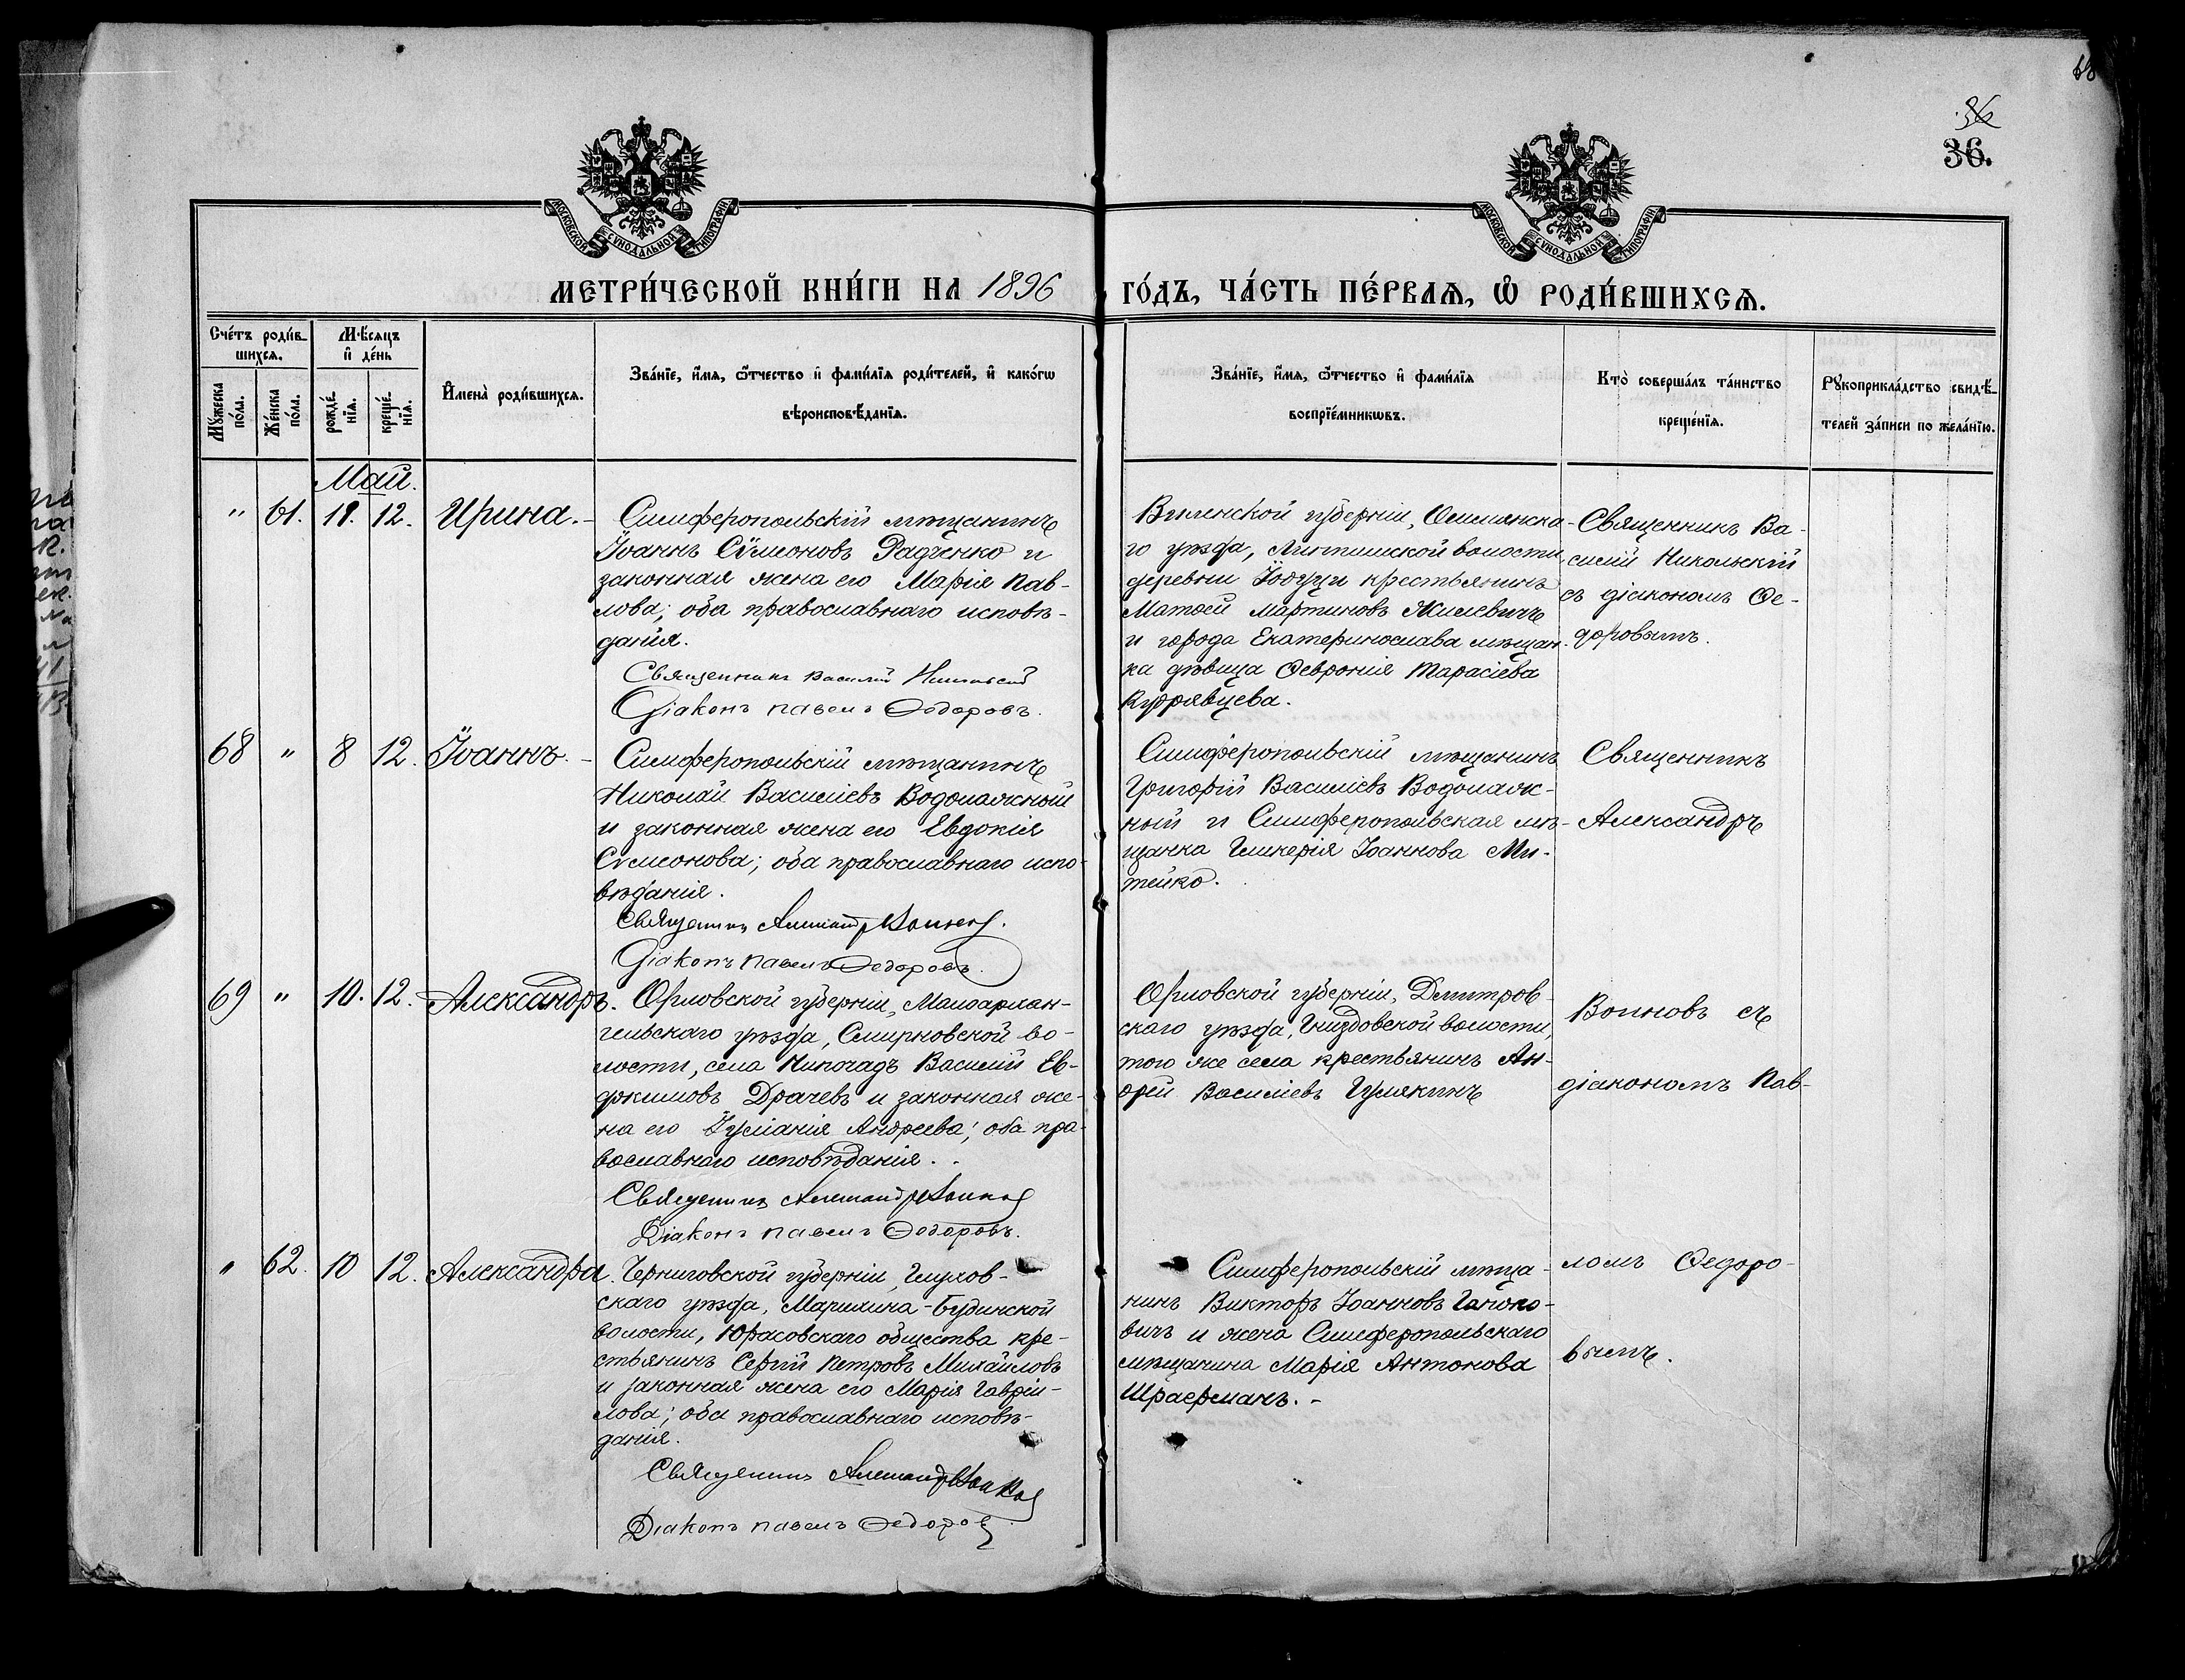 36
36.
МОСКОВСКОЙ СѴНОДАЛЬНОЙ ТИПОГРАФІИ
МОСКОВСКОЙ СѴНОДАЛЬНОЙ ТИПОГРАФІИ
МЕТРИ́ЧЕСКОЙ КНИ́ГИ НА 1896 ГО́ДЪ, ЧА́СТЬ ПЕ́РВАѦ, Ѡ҆ РОДИ́ВШИХСѦ.
Сче́тъ роди́в-
шихсѧ.
Мꙋ́жеска по́ла.
Же́нска по́ла.
Мѣ́сяцъ
и҆ де́нь
рожде́нїѧ.
креще́нїѧ.
И҆мена̀ роди́вшихсѧ.
Зва́нїе, и҆́мѧ, ѻ҆́тчество и҆ фами́лїѧ роди́телей, и҆ како́гѡ
вѣроисповѣ́данїѧ.
Зва́нїе, и҆́мѧ, ѻ҆́тчество и҆ фами́лїѧ
воспрїе́мникѡвъ.
Кто̀ соверша́лъ та́инство
креще́нїѧ.
Рꙋкоприкла́дство свидѣ́-
телей за́писи по жела́нїю.
Май.
" 61. 11. 12. Ирина.-
Симферопольскій мѣщанинъ
Іоаннъ Сѵмеоновъ Радченко и
законная жена его Марія Пав-
лова; оба православнаго исповѣ-
данія.
Священникъ Василій Никольскій
Діаконъ Павелъ Ѳедоровъ.
Виленской губерніи, Ошмянска-
го уѣзда, волости,
деревни крестьянинъ
Матѳей Мартиновъ Жилевичъ
и города Екатеринослава мѣщан-
ка дѣвица Ѳевронія Тарасіева
Кудрявцева.
Священникъ Ва-
силій Никольскій
съ діакономъ Ѳе-
доровымъ.
68 " 8 12. Іоаннъ.-
Симферопольскій мѣщанинъ
Николай Василіевъ Водолажскій
и законная жена его Евдокія
Сѵмеонова; оба православнаго испо-
вѣданія.
Священникъ Александръ Воиновъ.
Діаконъ Павелъ Ѳедоровъ.
Симферопольскій мѣщанинъ
Григорій Василіевъ Водолаж-
ный и Симферопольская мѣ-
щанка Гликерія Іоаннова Ми-
тейко.
Священникъ
Александръ
69 " 10. 12. Александръ.
Орловской губерніи, Малоархан-
гельскаго уѣзда, Смирновской во-
лости, села Василій Ев-
докимовъ Драчевъ и законная же-
на его Іуліанія Андреева; оба пра-
вославнаго исповѣданія.
Священникъ Александръ Воиновъ
Діаконъ Павелъ Ѳедоровъ.
Орловской губерніи, Дмитров-
скаго уѣзда, Гнѣздовской волости,
того же села крестьянинъ Ан-
дрей Василіевъ Гулякинъ
Воиновъ съ
діакономъ Пав-
" 62. 10 12. Александра.
Черниговской губерніи, Глухов-
скаго уѣзда, Марчихина-Будинской
волости, Юрасовскаго общества кре-
стьянинъ Сергій Петровъ Михайловъ
и законная жена его Марія Гаврі-
лова; оба православнаго исповѣ-
данія.
Священникъ Александръ Воиновъ
Діаконъ Павелъ Ѳедоровъ.
Симферопольскій мѣща-
нинъ Викторъ Іоанновъ Ганоко-
вичъ и жена Симферопольскаго
мѣщанина Марія Антонова
Шраерманъ.-
ломъ Ѳедоро-
вымъ.